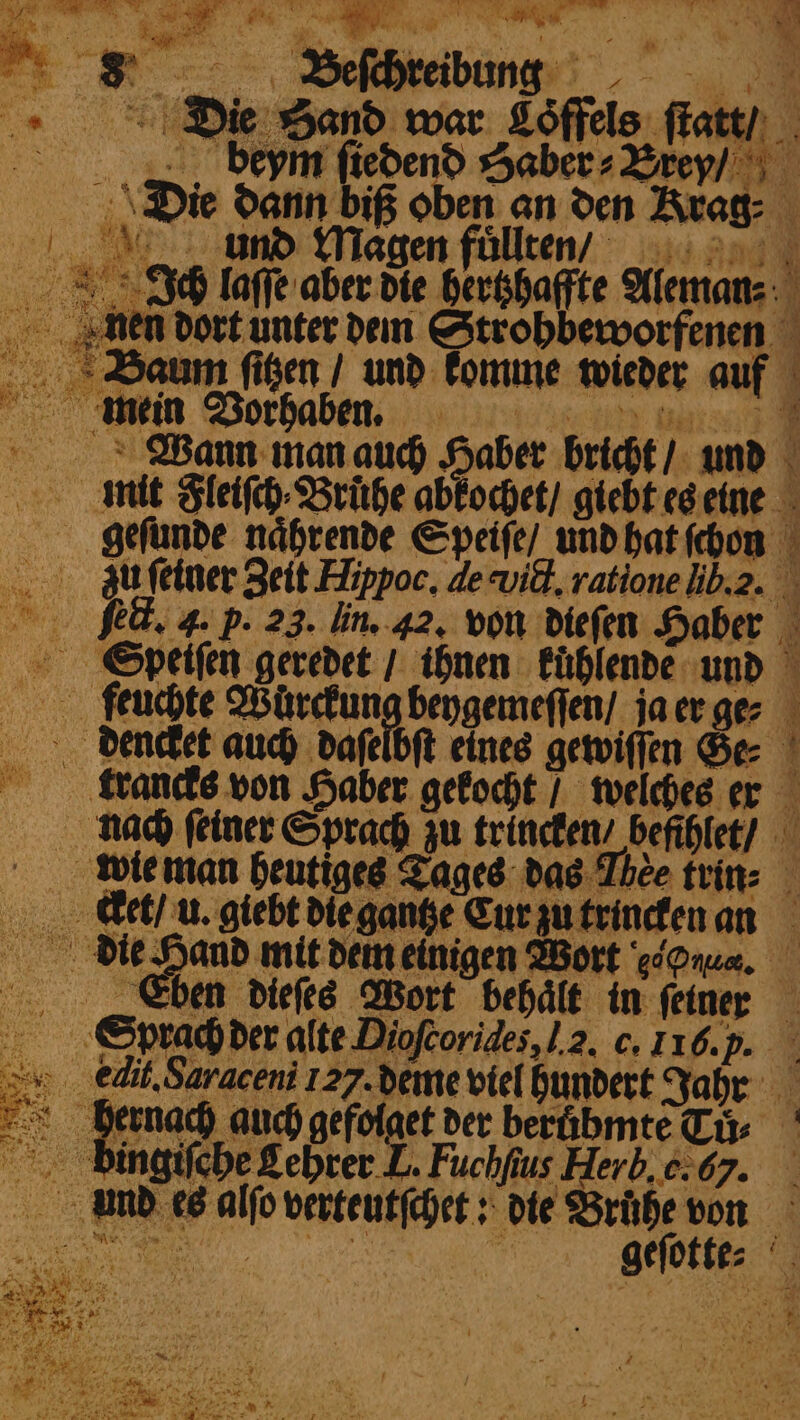 8 Beſchreibung
Die Hand war Loͤffels ſtatt/
beym ſiedend Haber⸗Brey/
Die dann biß oben an den Krag⸗
und Magen fuͤllten/
Ich laſſe aber die hertzhaffte Aleman⸗
nen dort unter dem Strohbeworfenen
Baum ſitzen / und komme wieder auf
mein Vorhaben.
Wann man auch Haber bricht / und
mit Fleiſch⸗Bruͤhe abkochet/ giebt es eine
geſunde naͤhrende Speiſe/ und hat ſchon
zu ſeiner Zeit Hippoc. de vict. ratione lib. 2.
ſect. 4. p. 23. lin. 42. von dieſen Haber
Speiſen geredet / ihnen kuͤhlende und
feuchte Wuͤrckung beygemeſſen/ ja er ge⸗
dencket auch daſelbſt eines gewiſſen Ge⸗
trancks von Haber gekocht / welches er
nach ſeiner Sprach zu trincken/ befihlet/
wie man heutiges Tages das Thèe trin⸗
cket/ u. giebt die gantze Cur zu trincken an
die Hand mit dem einigen Wort ῥόφημα.
Eben dieſes Wort behaͤlt in ſeiner
Sprach der alte Dioſcorides, l. 2. c. 116. p.
edit. Saraceni 127. deme viel hundert Jahr
hernach auch gefolget der beruͤhmte Tuͤ⸗
bingiſche Lehrer L. Fuchſius Herb. c. 67.
und es alſo verteutſchet: die Bruͤhe von
geſotte⸗